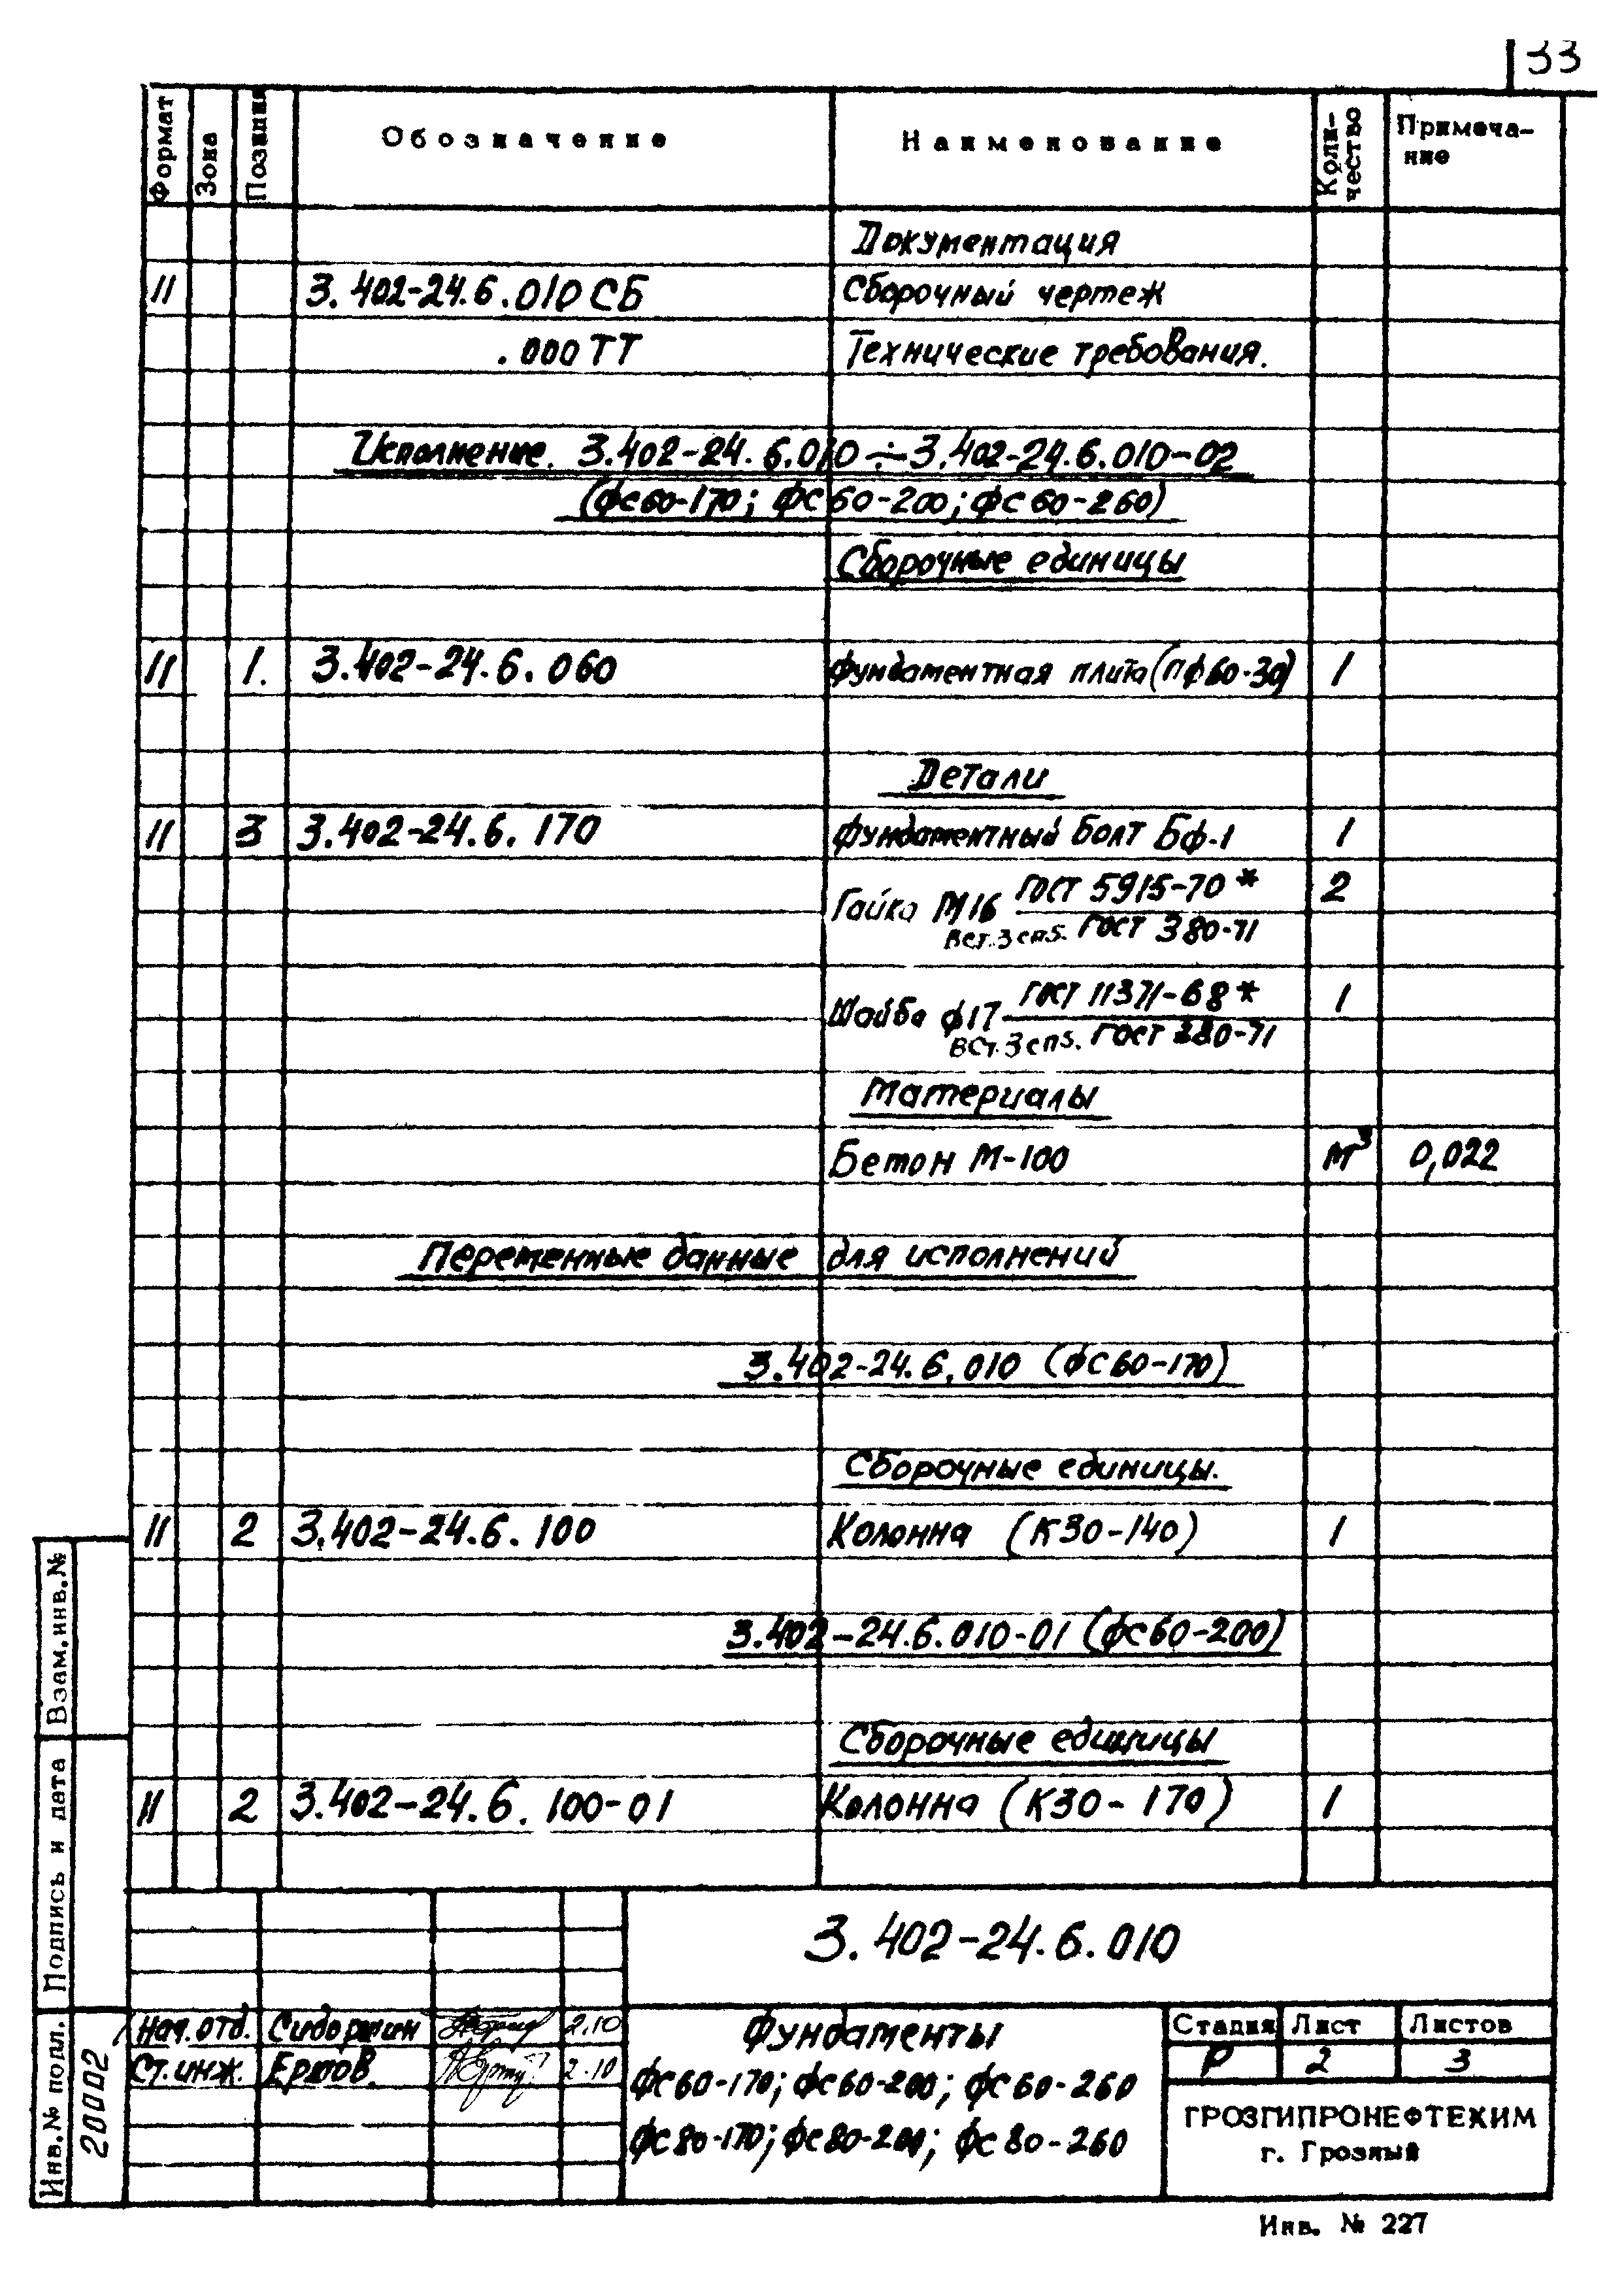 33
Формат Зона Позиция Обозначение Наименование Коли-чество Примеча-ние
Документация
11 3.402-24.6.010 СБ Сборочный чертеж
.000 ТТ Технические требования.
Исполнение. 3.402-24.6.010÷3.402-24.6.010-02
(фс60-170; фс60-200; фс60-260)
Сборочные единицы
11 1. 3.402-24.6.060 Фундаментная плита (пф60-30) 1
Детали
11 3 3.402-24.6.170 Фундаментный болт Бф-1 1
Гайка М16 ГОСТ 5915-70* 2
Вст.3сп5. ГОСТ 380-71
Шайба ф17 ГОСТ 11371-68* 1
ВСт.3сп5. ГОСТ 380-71
Материалы
Бетон М-100 м³ 0,022
Переменные данные для исполнений
3.402-24.6.010 (фс60-170)
Сборочные единицы.
11 2 3.402-24.6.100 Колонна (К30-140) 1
3.402-24.6.010-01 (фс60-200)
Сборочные единицы
11 2 3.402-24.6.100-01 Колонна (К30-170) 1
Взам.инв.№
Подпись и дата
Инв.№ подл.
20002
3.402-24.6.010
Нач.отд. 2.10
Ст.инж. Ершов. 2.10
Фундаменты
фс60-170; фс60-200; фс60-260
фс80-170; фс80-200; фс80-260
Стадия Лист Листов
Р 2 3
ГРОЗГИПРОНЕФТЕХИМ
г. Грозный
Инв. № 227